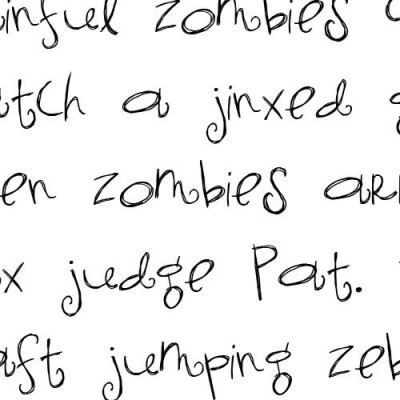 inful zombies
atch a jinxed g
en zombies arr
x judge Pat.
aft jumping zeb